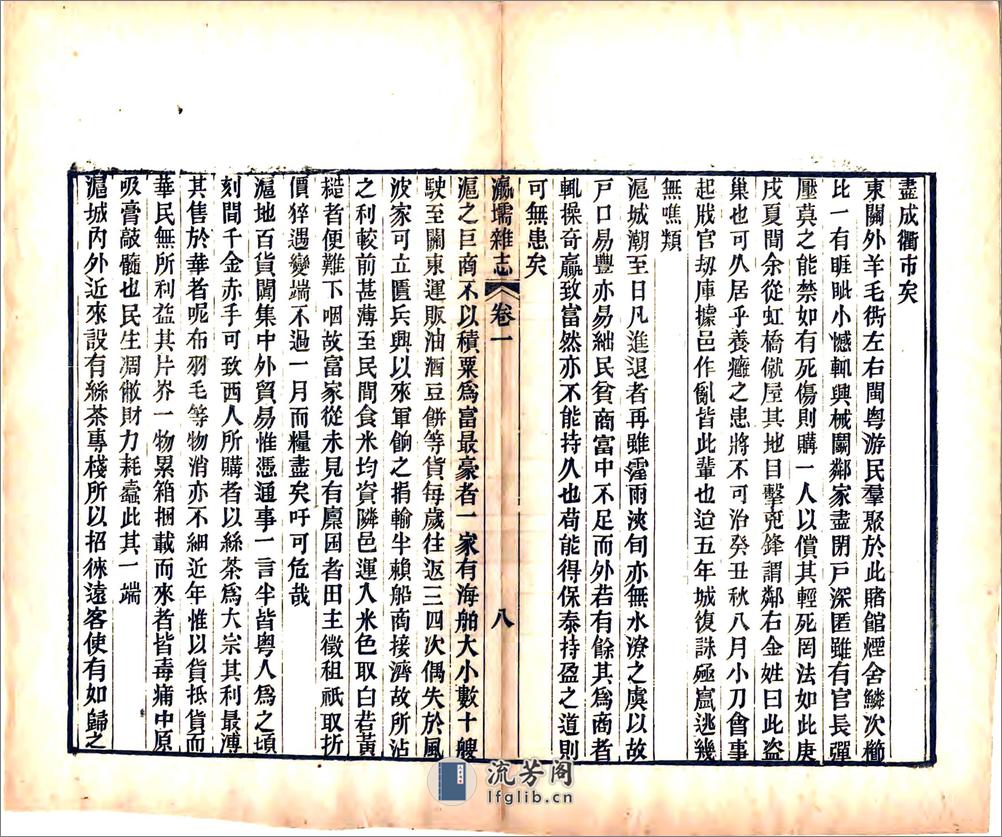 盡成衢市矣
東關外羊毛衖左右閩粵游民羣聚於此賭館煙舍鱗次櫛
比一有睚眦小憾輒興械鬭鄰家盡閉戶深匿雖有官長彈
壓莫之能禁如有死傷則購一人以償其輕死罔法如此庚
戌夏間余從虹橋僦屋其地目擊兇鋒謂鄰右金姓曰此盜
巢也可久居乎養癰之患將不可治癸丑秋八月小刀會事
起戕官刼庫據邑作亂皆此輩也迨五年城復誅殛竄逃幾
無噍類
滬城潮至日凡進退者再雖霪雨浹旬亦無水潦之虞以故
戶口易豐亦易絀民貧商富中不足而外若有餘其爲商者
輒操奇贏致富然亦不能持久也苟能得保泰持盈之道則
可無患矣
瀛壖雜志 卷一 八
滬之巨商不以積粟爲富最豪者一家有海舶大小數十艘
駛至關東運販油酒豆餅等貨每歲往返三四次偶失於風
波家可立匱兵興以來軍餉之捐輸半賴船商接濟故所沾
之利較前甚薄至民間食米均資隣邑運入米色取白若黃
糙者便難下咽故富家從未見有廩囷者田主徵租祇取折
價猝遇變端不過一月而糧盡矣吁可危哉
滬地百貨闐集中外貿易惟憑通事一言半皆粵人爲之頃
刻間千金赤手可致西人所購者以絲茶爲大宗其利最溥
其售於華者呢布羽毛等物消亦不細近年惟以貨抵貨而
華民無所利益其片芥一物累箱捆載而來者皆毒痡中原
吸膏敲髓也民生凋敝財力耗蠹此其一端
滬城內外近來設有絲茶專棧所以招徠遠客使有如歸之
流芳阁
lfglib.cn